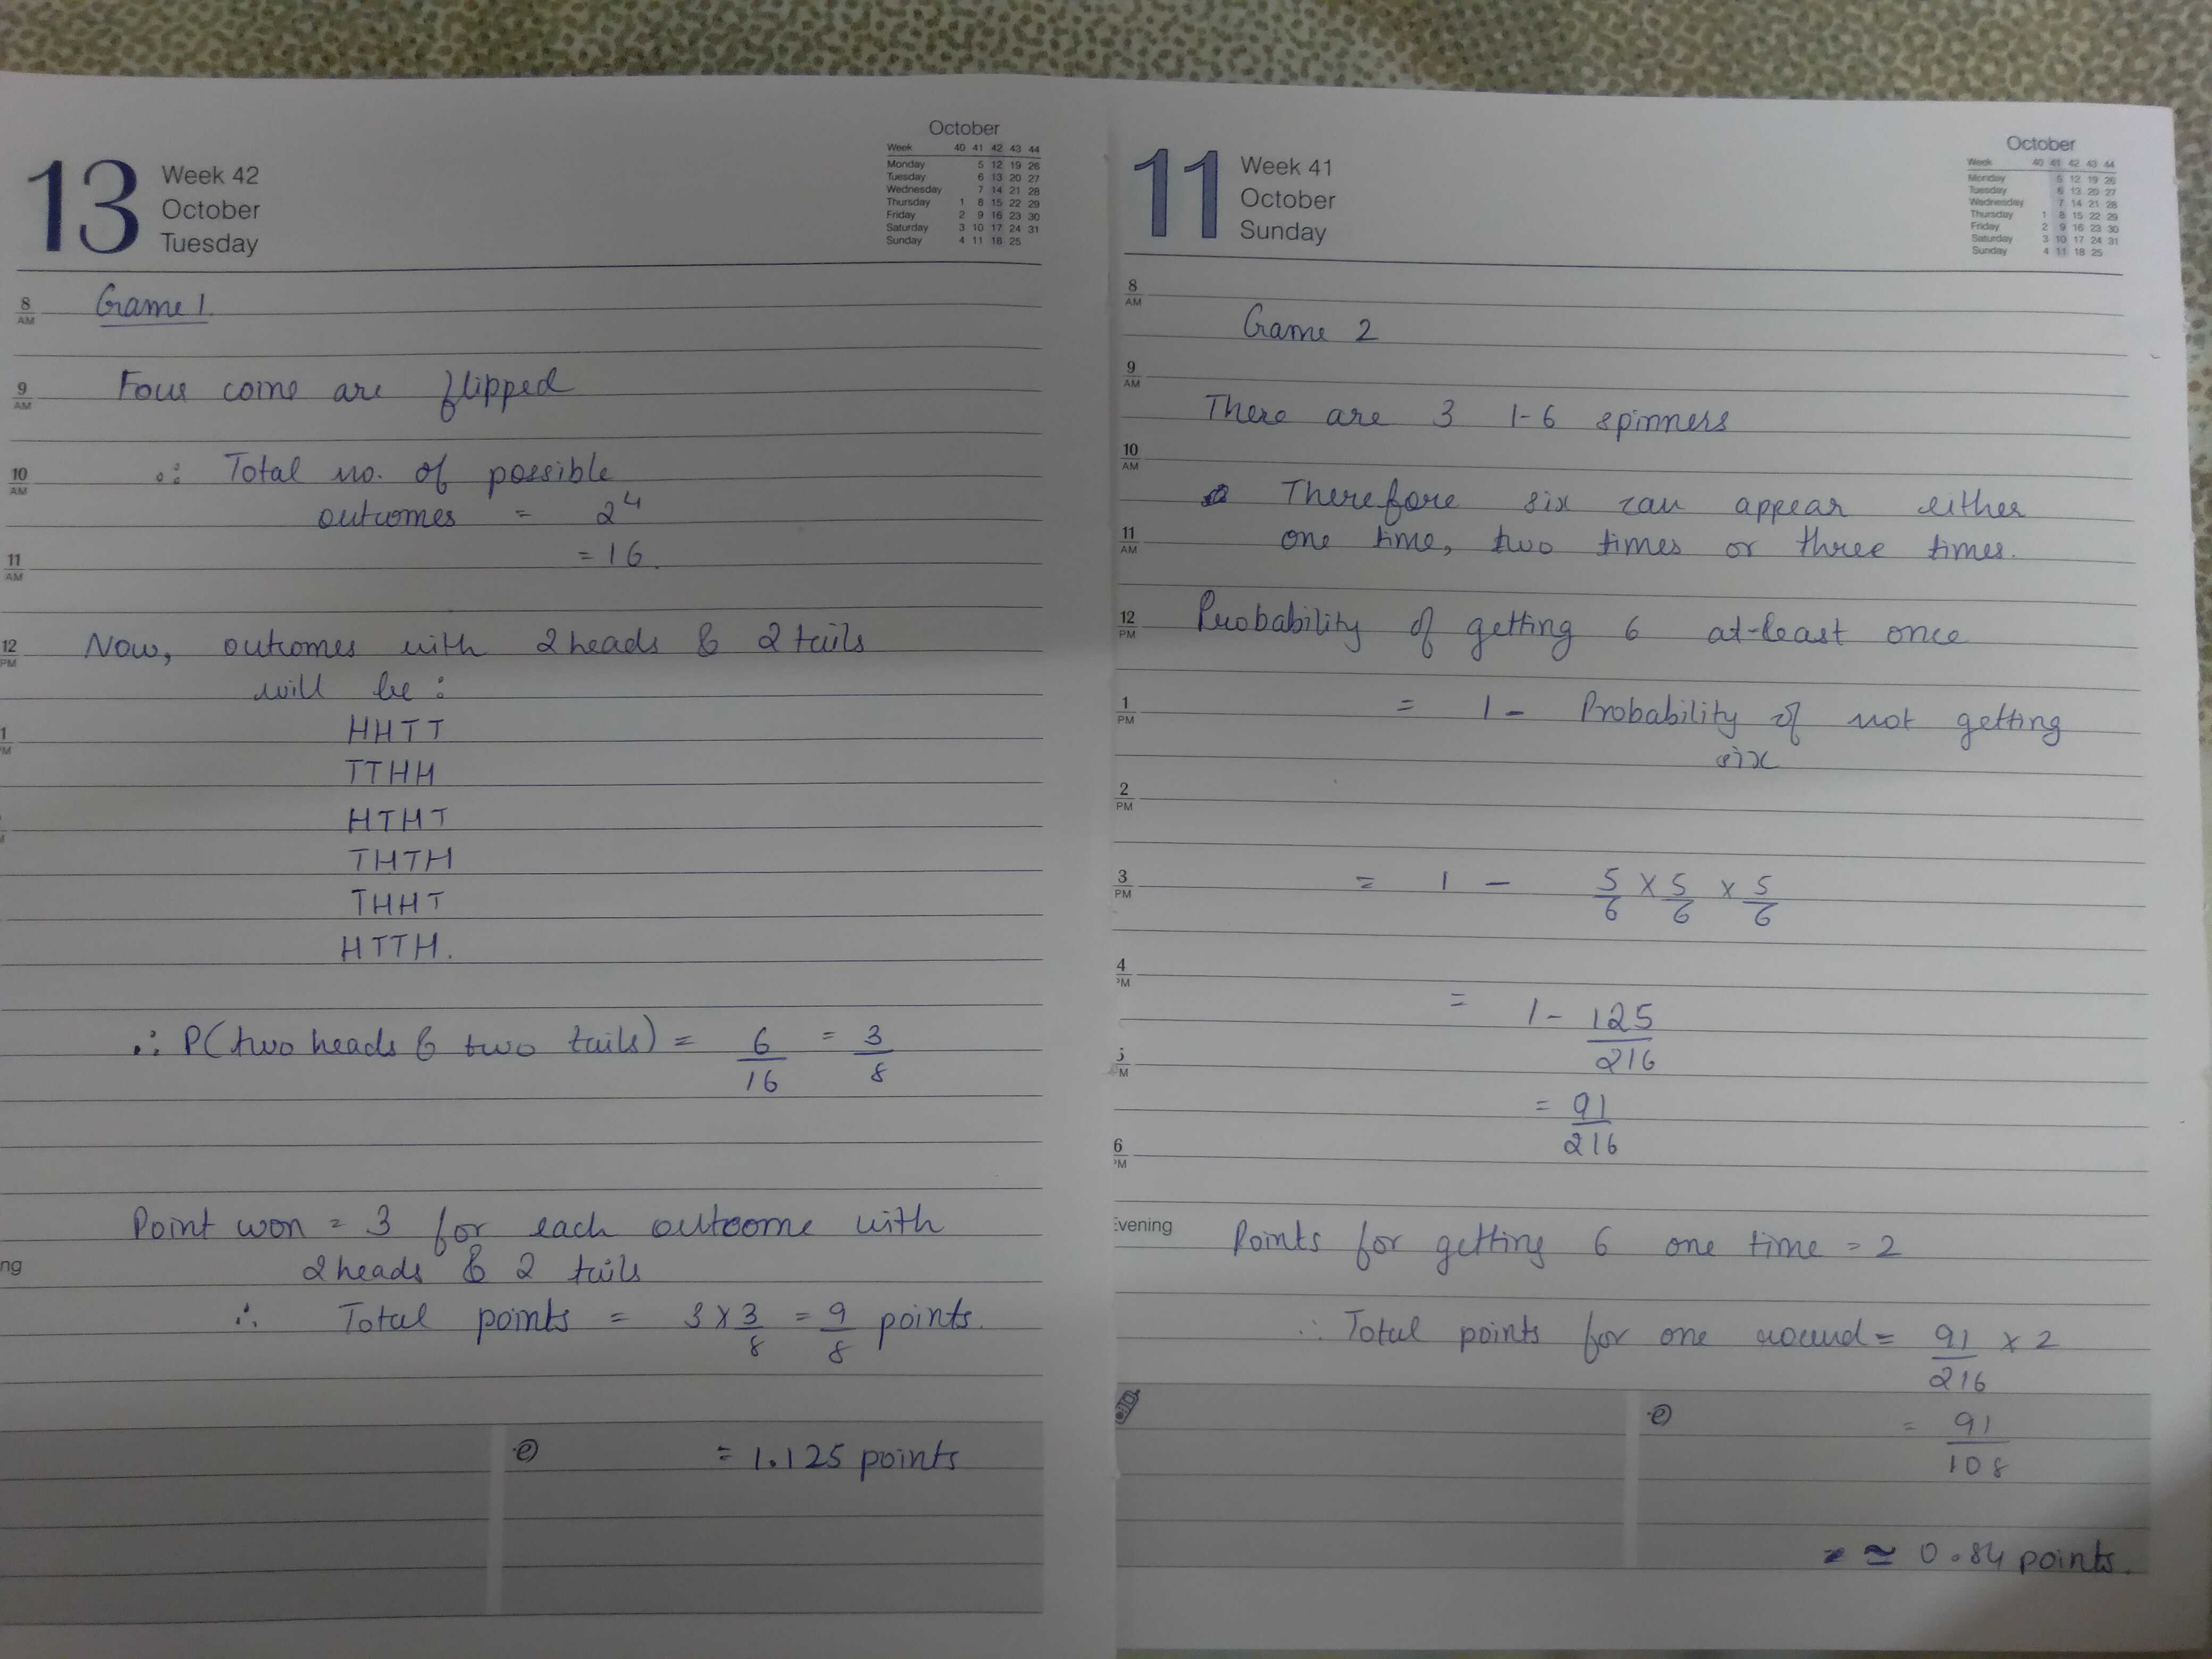 13
Week 42
October
Tuesday
October
Week 40 41 42 43 44
Monday 5 12 19 26
Tuesday 6 13 20 27
Wednesday 7 14 21 28
Thursday 1 8 15 22 29
Friday 2 9 16 23 30
Saturday 3 10 17 24 31
Sunday 4 11 18 25
8 AM Game 1.
9 AM Four coins are flipped
10 AM ∴ Total no. of possible
outcomes = 2⁴
11 AM = 16.
12 PM Now, outcomes with 2 heads & 2 tails
will be :
1 PM HHTT
TTHH
HTHT
THTH
THHT
HTTH.
∴ P(two heads & two tails) = 6/16 = 3/8
Point won = 3 for each outcome with
ng 2 heads & 2 tails
∴ Total points = 3 × 3/8 = 9/8 points.
= 1.125 points
11
Week 41
October
Sunday
October
Week 40 41 42 43 44
Monday 5 12 19 26
Tuesday 6 13 20 27
Wednesday 7 14 21 28
Thursday 1 8 15 22 29
Friday 2 9 16 23 30
Saturday 3 10 17 24 31
Sunday 4 11 18 25
8 AM
Game 2
9 AM
There are 3 1-6 spinners
10 AM
Therefore six can appear either
11 AM one time, two times or three times.
12 PM Probability of getting 6 at-least once
1 PM = 1 - Probability of not getting
six
2 PM
3 PM = 1 - 5/6 × 5/6 × 5/6
4 PM
= 1 - 125/216
5 PM
= 91/216
6 PM
Evening Points for getting 6 one time = 2
∴ Total points for one round = 91/216 × 2
= 91/108
≃ 0.84 points.